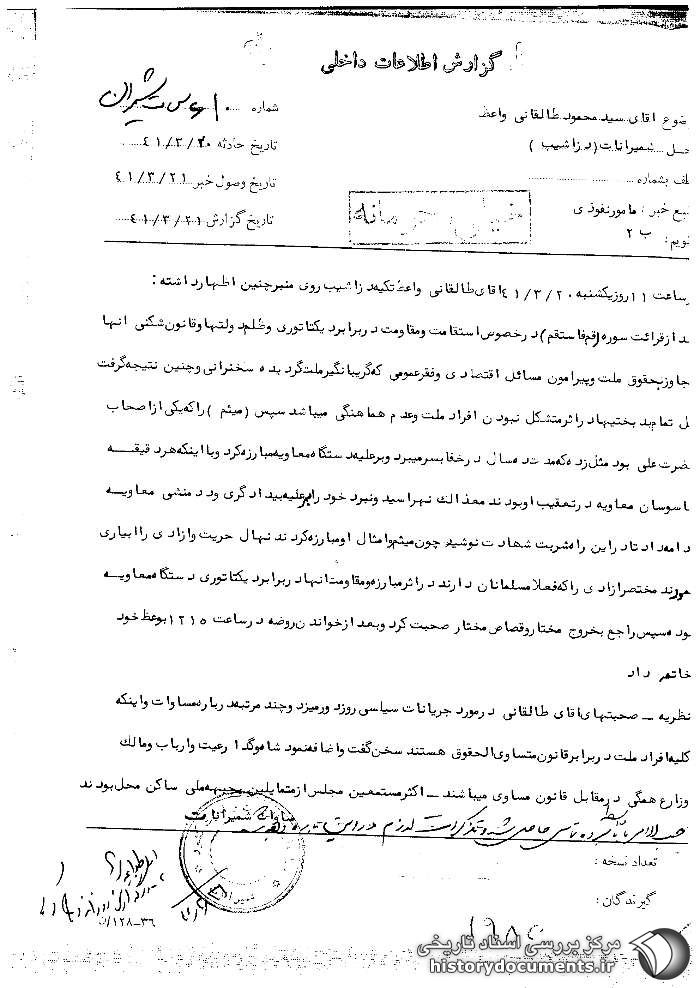 گزارش اطلاعات داخلی
ضوع آقای سید محمود طالقانی واعظ
شماره
حل شمیرانات (دزاشیب)
تاریخ حادثه ۴۱/۳/۲۰
طف بشماره
تاریخ وصول خبر ۴۱/۳/۲۱
نبع خبر: مامور نفوذی
تاریخ گزارش ۴۱/۳/۲۱
قویم: ب ۲
خیلی محرمانه
ساعت ۱۱ روز یکشنبه ۴۱/۳/۲۰ آقای طالقانی واعظ تکیه دزاشیب روی منبر چنین اظهار داشته:
د از قرائت سوره (قم فاستقم) در خصوص استقامت و مقاومت در برابر دیکتاتوری و ظلم دولتها و قانون شکنی آنها
جاوز بحقوق ملت و پیرامون مسائل اقتصادی و فقر عمومی که گریبانگیر ملت گردیده سخنرانی و چنین نتیجه گرفت
ل تمام بدبختیها در اثر متشکل نبودن افراد ملت و عدم هماهنگی میباشد سپس (میثم) را که یکی از اصحاب
ضرت علی بود مثل زده که مدت ده سال در خفا بسر میبرد و بر علیه دستگاه معاویه مبارزه کرد و با اینکه هر دقیقه
اسوسان معاویه در تعقیب او بودند معذالک نهراسید و نبرد خود را بر علیه بیدادگری و دد منشی معاویه
دامه داد تا در این راه شربت شهادت نوشید چون میثم و امثال او مبارزه کردند نهال حریت و آزادی را آبیاری
مودند مختصر آزادی را که فعلا مسلمانان دارند در اثر مبارزه و مقاومت آنها در برابر دیکتاتوری دستگاه معاویه
وده سپس راجع بخروج مختار و قصاص مختار صحبت کرد و بعد از خواندن روضه در ساعت ۱۲۱۵ بوعظ خود
خاتمه داد
نظریه ــ صحبتهای آقای طالقانی در مورد جریانات سیاسی روز دور میزد و چند مرتبه درباره مساوات و اینکه
کلیه افراد ملت در برابر قانون متساوی الحقوق هستند سخن گفت و اضافه نمود شاه و گدا رعیت و ارباب و مالک
و زارع همگی در مقابل قانون مساوی میباشند ــ اکثر مستمعین مجلس از متمایلین بجبهه ملی ساکن محل بودند
ساواک شمیرانات
تعداد نسخه:
گیرندگان:
۳۶-۱۲۸
مرکز بررسی اسناد تاریخی
historydocuments.ir